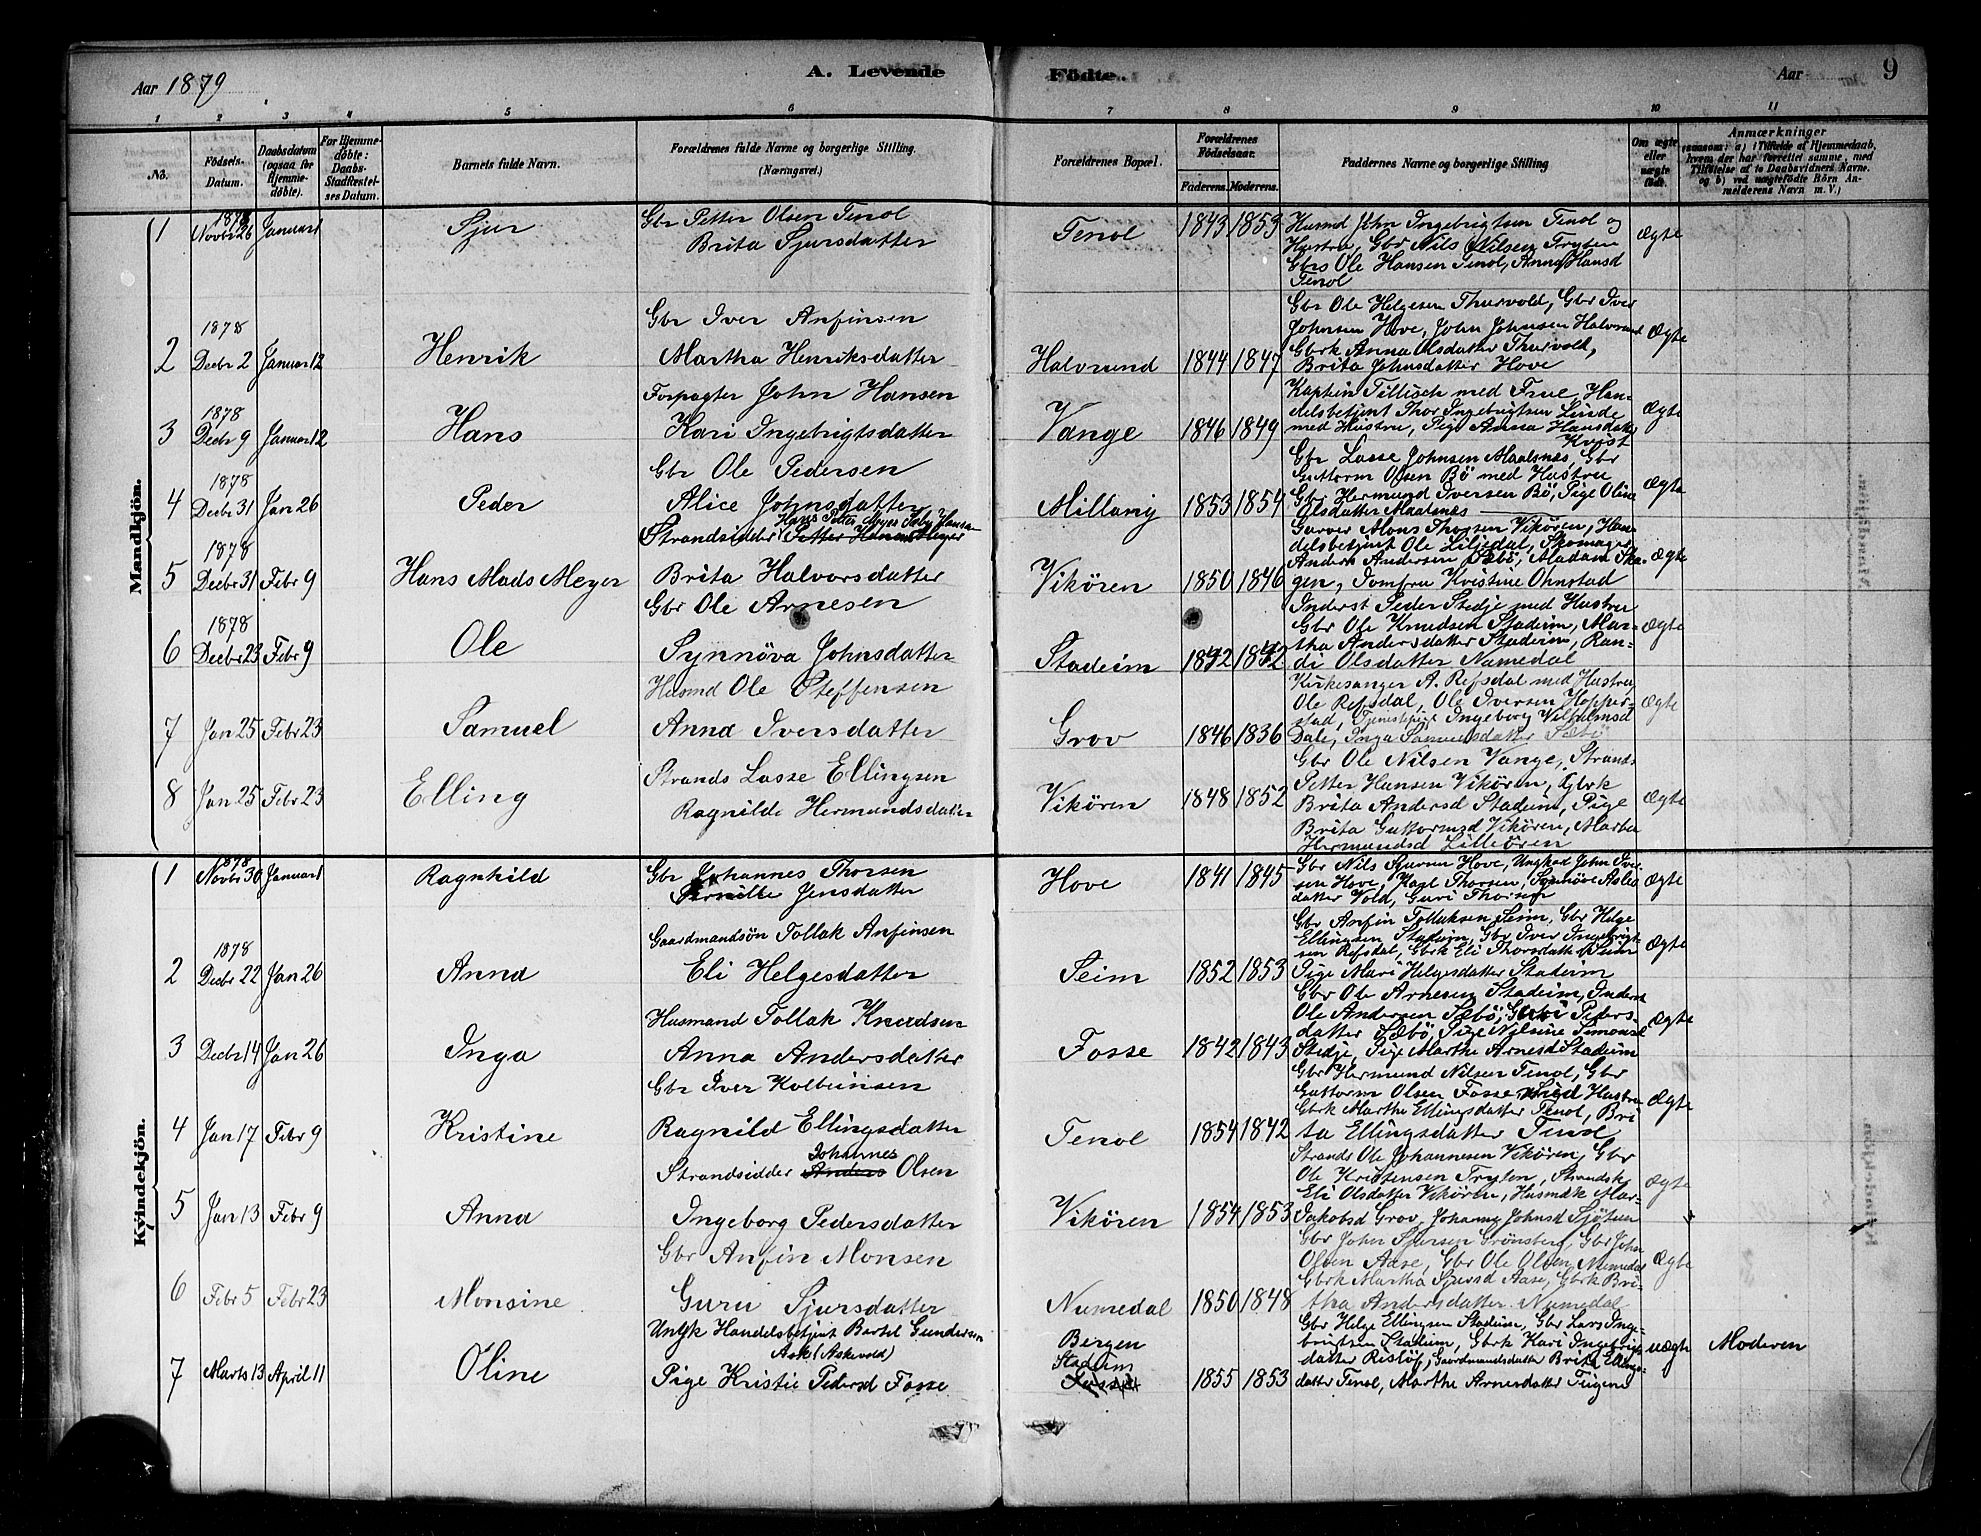 Aar 1879
A. Levende
Födte.
Aar
9
1 2 3 4 5 6 7 8 9 10 11
No.
Födsels-
Datum.
Daabsdatum
(ogsaa for
Hjemme-
døbte).
For Hjemme-
döbte:
Daabs-
Stadfæstel-
ses Datum.
Barnets fulde Navn.
Forældrenes fulde Navne og borgerlige Stilling.
(Næringsvei.)
Forældrenes Bopæl.
Forældrenes
Födselsaar.
Faderens. Moderens.
Faddernes Navne og borgerlige Stilling
Om ægte
eller
uægte
födt.
Anmærkninger
(saasom: a) i Tilfælde af Hjemmedaab,
hvem der har forrettet samme, med
Tilföielse af to Daabsvidners Navne.
og b) ved uægtefödte Börn An-
melderens Navn m. V.)
Mandkjön.
1 1878 Novbr 26 Januar 1 Sjur
Gbr Petter Olsen Tenol
Brita Sjursdatter
Tenol 1843 1853
Husmd John Ingebrigtsen Tenol og
Hustru, Gbr Nils Nilsen Tryten
Gbrs Ole Hansen Tenol, Anna Hansd
Tenol
Ægte
2 1878 Decbr 2 Januar 12 Henrik
Gbr Iver Anfinsen
Martha Henriksdatter
Halvrund 1844 1847
Gbr Ole Helgesen Thurvold, Gbr Iver
Johnsen Hove, John Johnsen Halvrund
Gbrk Anna Olsdatter Thurvold,
Brita Johnsdatter Hove
Ægte
3 1878 Decbr 9 Januar 12 Hans
Forpagter John Hansen
Kari Ingebrigtsdatter
Vange 1846 1849
Kaptein Tillisch med Frue, Han-
delsbetjent Thor Ingebrigtsen Linde
med Hustru, Pige Anna Hansdatter
Kvist
Ægte
4 1878 Decbr 31 Jan 26 Peder
Gbr Ole Pedersen
Alice Johnsdatter
Millang 1853 1854
Gbr Lasse Johnsen Maalsnes, Gbr
Guttorm Olsen Bö med Hustru
Gbr Hermund Iversen Bö, Pige Olina
Olsdatter Maalsnes
Ægte
5 1878 Decbr 31 Febr 9 Hans Mads Meyer
Hans Petter Meyer
Strandsidder Petter Meyer
Brita Halvorsdatter
Vikören 1850 1846
Garver Mons Thorsen Vikören, Han-
delsbetjent Ole Liljedal, Skomager
Anders Andersen Sæbö, Madam Ska-
gen, Jomfru Kristine Ohnstad
Ægte
6 1878 Decbr 23 Febr 9 Ole
Gbr Ole Arnesen
Synnöva Johnsdatter
Stadeim 1842 1842
Inderst Peder Stedje med Hustru
Gbr Ole Knudsen Stadeim, Mar-
tha Andersdatter Stadeim, Ran-
di Olsdatter Numedal
Ægte
7 Jan 25 Febr 23 Samuel
Husmd Ole Steffensen
Anna Iversdatter
Grov 1846 1836
Kirkesanger A. Refsdal med Hustru
Ole Refsdal, Ole Iversen Hopper-
stad, Tjenestepige Ingeborg Vilhelmsd
Dale, Inga Samuelsdatter Sæbö
Ægte
8 Jan 25 Febr 23 Elling
Strands Lasse Ellingsen
Ragnilde Hermundsdatter
Vikören 1848 1852
Gbr Ole Nilsen Vange, Strands
Petter Hansen Vikören, Gbrk
Brita Andersd Stadeim, Pige
Brita Guttormsd Vikören, Martha
Hermundsd Lilleören
Ægte
Kvindekjön.
1 1878 Novbr 30 Januar 1 Ragnhild
Gbr Johannes Thorsen
Pernille Jensdatter
Hove 1841 1845
Gbr Nils Sjursen Hove, Ungkad John Iver
sen Hove, Karl Thorsen, Synnöve Aslea
datter Vold, Guri Thorsen
Ægte
2 1878 Decbr 22 Jan 26 Anna
Gaardmandsön Tollak Anfinsen
Eli Helgesdatter
Seim 1852 1853
Gbr Anfin Tollaksen Seim, Gbr Helge
Ellingsen Stadeim, Gbr Iver Ingebrigt-
sen Refsdal, Gbrk Eli Thorsdatter Seim
Pige Mari Helgesdatter Stadeim
Ægte
3 Decbr 14 Jan 26 Inga
Husmand Tollak Knudsen
Anna Andersdatter
Fosse 1842 1843
Gbr Ole Arnesen Stadeim, Inderst
Ole Andersen Sæbö, Guri Peders
datter Sæbö, Pige Nilsine Simonsd
Stedje, Pige Marthe Arnesd Stadeim
Ægte
4 Jan 17 Febr 9 Kristine
Gbr Iver Kolbeinsen
Ragnild Ellingsdatter
Tenol 1854 1842
Gbr Hermund Nilsen Tenol, Gbr
Guttorm Olsen Fosse med Hustru
Gbrk Marthe Ellingsdatter Tenol, Bri
ta Ellingsdatter Tenol
Ægte
5 Jan 13 Febr 9 Anna
Johannes
Strandsidder Anders Olsen
Ingeborg Pedersdatter
Vikören 1854 1853
Strands Ole Johannesen Vikören, Gbr
Ole Kristensen Tryten, Strandsk
Eli Olsdatter Vikören, Husmdk Mar-
Jakobsd Grov, Johanna Johnsd Sjötun
Ægte
6 Febr 5 Febr 23 Monsine
Gbr Anfin Monsen
Guru Sjursdatter
Numedal 1850 1848
Gbr John Sjursen Grönsberg, Gbr John
Olsen Aase, Gbr Ole Olsen Numedal
Gbrk Martha Sjursd Aase, Gbrk Bri-
tha Andersdatter Numedal
Ægte
7 Marts 13 April 11 Oline
Ungk Handelsbetjent Bartel Gundersen
Ask (Askevold)
Pige Kristie Pedersd Fosse
Bergen
Stadeim
Fosse
1855 1853
Gbr Helge Ellingsen Stadeim, Gbr Lars Inge-
brigtsen Stadeim, Gbrk Kari Ingebrigts
datter Reslöf, Gaardmandsdatter Brita Ellings-
datter Tenol, Marthe Arnesdatter Teigene
uægte
Moderen